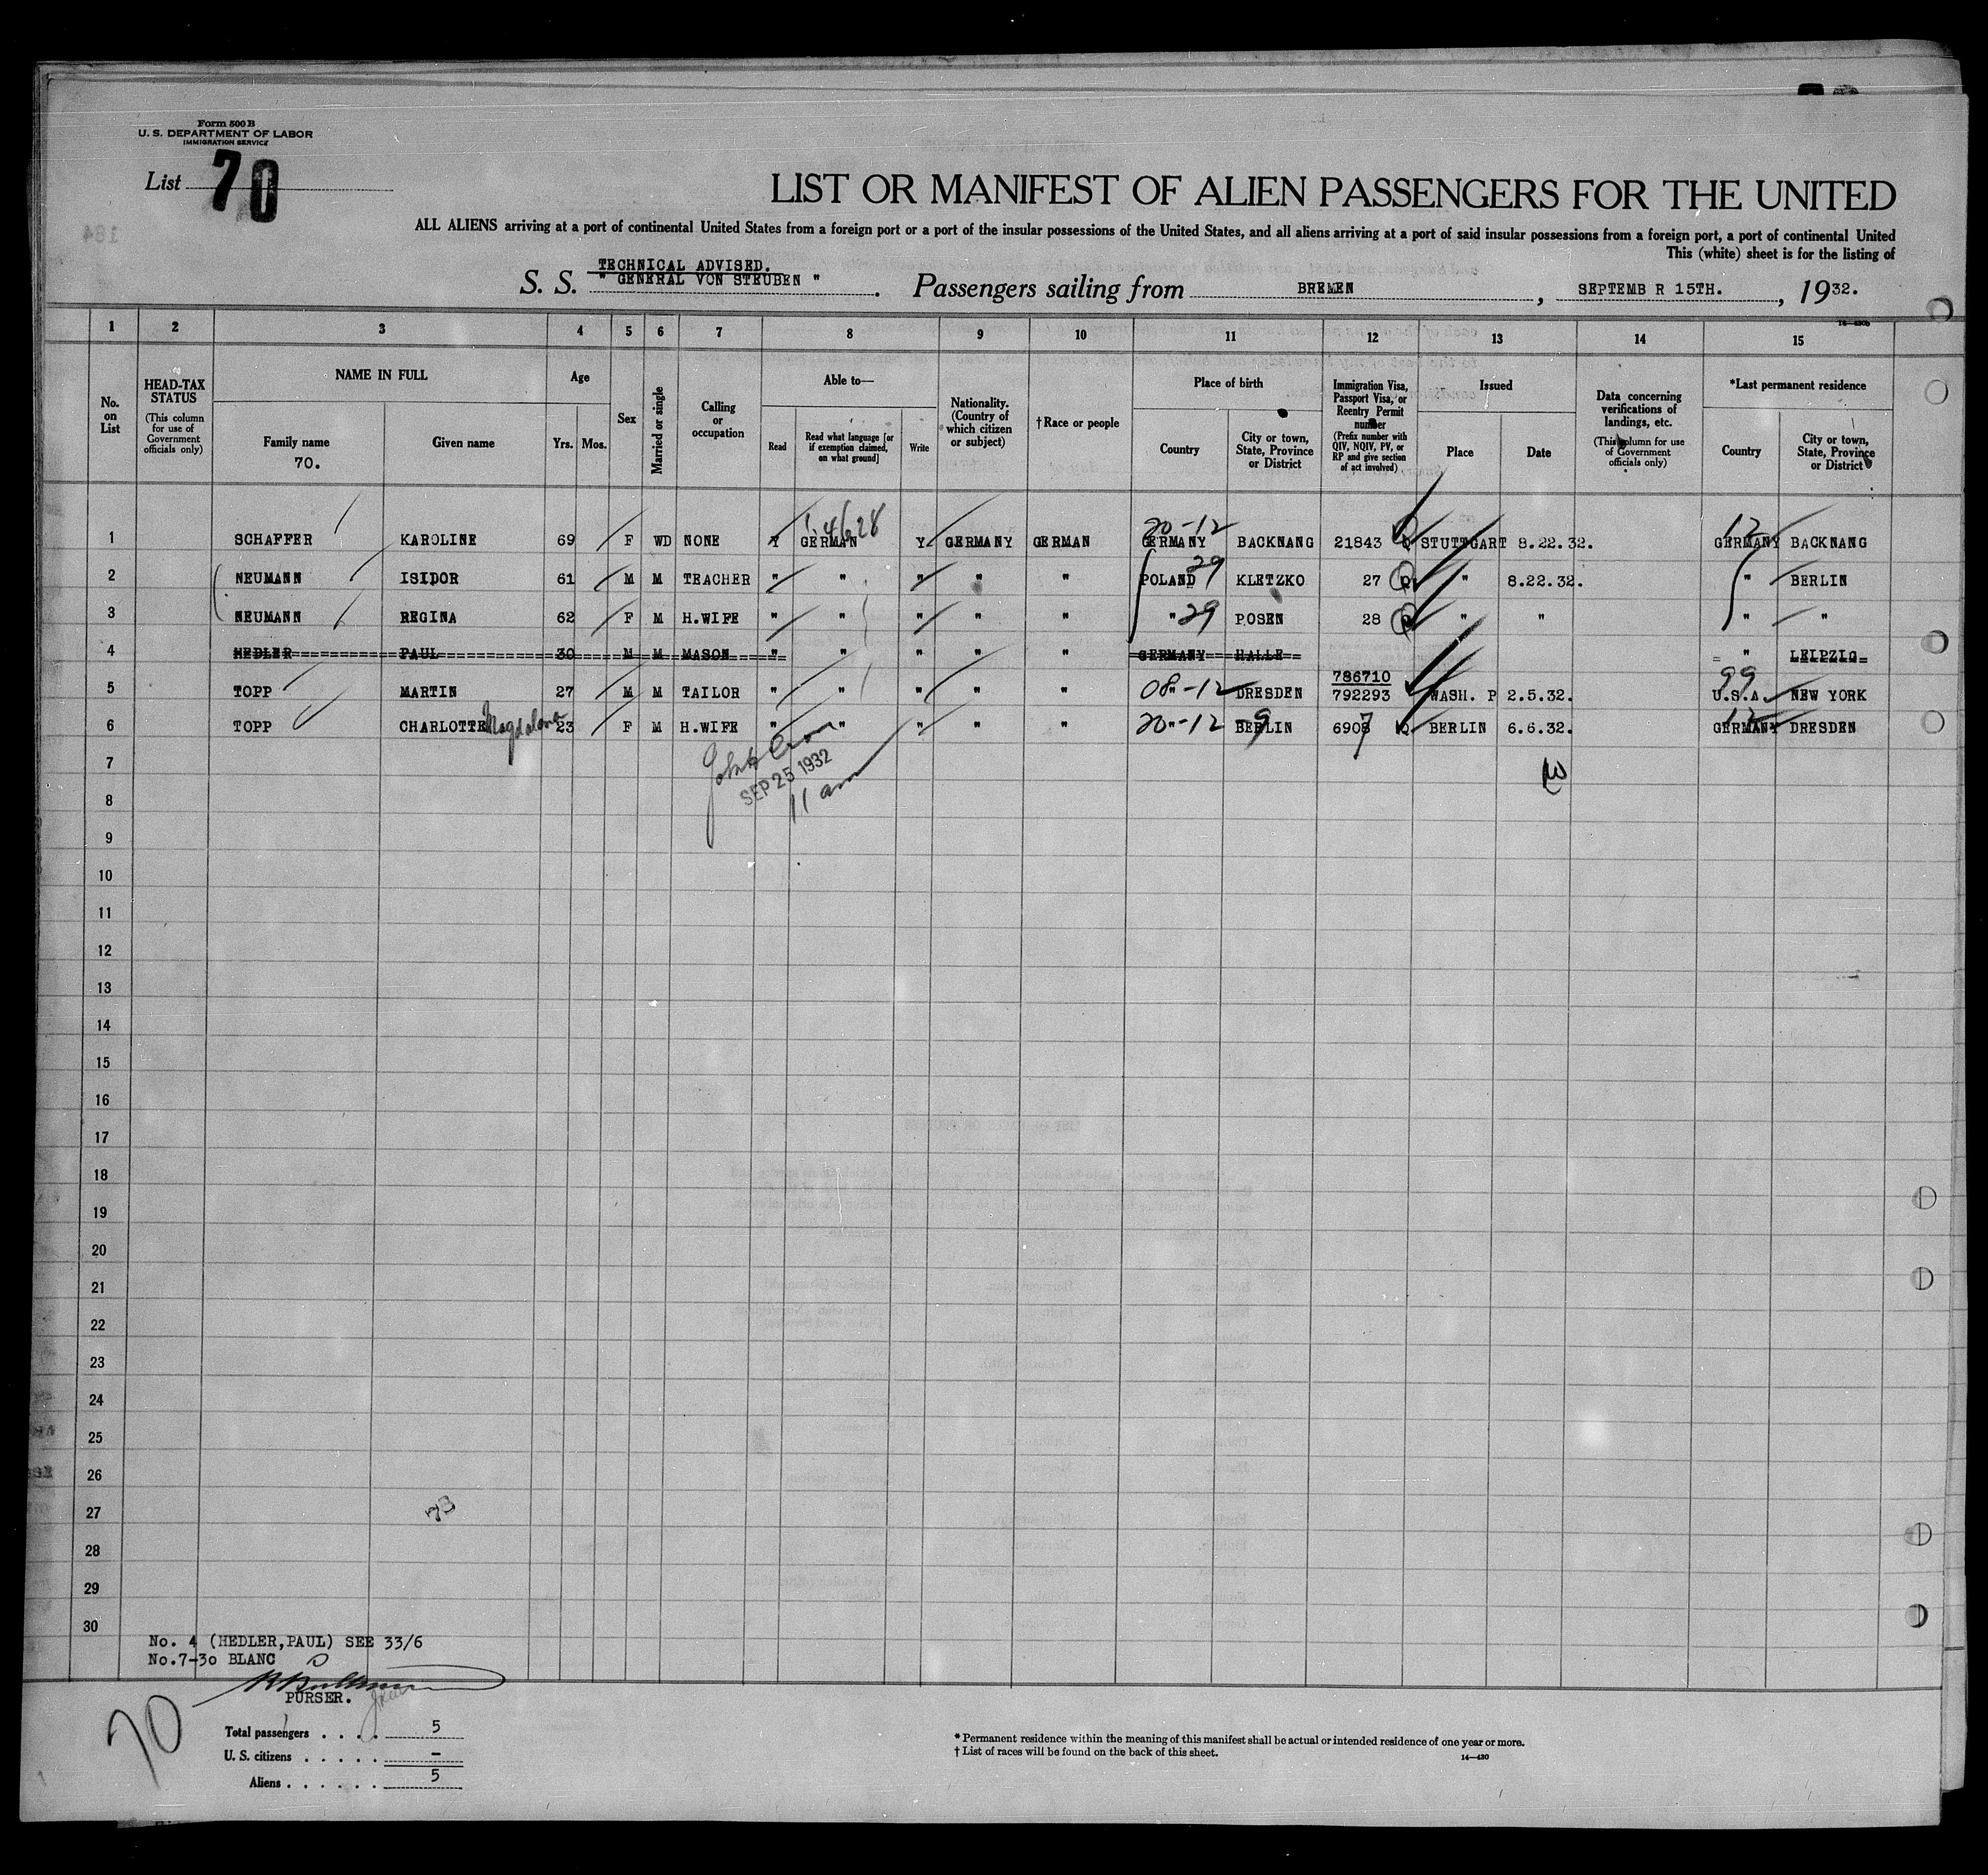 Form 500 B
U. S. DEPARTMENT OF LABOR
IMMIGRATION SERVICE
List 70
LIST OR MANIFEST OF ALIEN PASSENGERS FOR THE UNITED
ALL ALIENS arriving at a port of continental United States from a foreign port or a port of the insular possessions of the United States, and all aliens arriving at a port of said insular possessions from a foreign port, a port of continental United
This (white) sheet is for the listing of
TECHNICAL ADVISED.
S. S. " GENERAL VON STEUBEN " . Passengers sailing from BREMEN , SEPTEMB R 15TH. , 1932.
1 2 3 4 5 6 7 8 9 10 11 12 13 14 15
No. on List
HEAD-TAX STATUS (This column for use of Government officials only)
NAME IN FULL
Family name
70.
Given name
Age
Yrs. Mos.
Sex
Married or single
Calling or occupation
Able to—
Read
Read what language [or if exemption claimed, on what ground]
Write
Nationality. (Country of which citizen or subject)
† Race or people
Place of birth
Country
City or town, State, Province or District
Immigration Visa, Passport Visa, or Reentry Permit number (Prefix number with QIV, NQIV, PV, or RP and give section of act involved)
Issued
Place
Date
Data concerning verifications of landings, etc. (This column for use of Government officials only)
*Last permanent residence
Country
City or town, State, Province or District
20-12 12
1 SCHAFFER KAROLINE 69 F WD NONE Y GERMAN Y GERMANY GERMAN GERMANY BACKNANG 21843 STUTTGART 8.22.32. GERMANY BACKNANG
2 NEUMANN ISIDOR 61 M M TEACHER " " " " " POLAND 29 KLETZKO 27 " 8.22.32. " BERLIN
3 NEUMANN REGINA 62 F M H.WIFE " " " " " " 29 POSEN 28 " " " "
4 HEDLER PAUL 30 M M MASON " " " " " GERMANY HALLE " LEIPZIG
786710 99
5 TOPP MARTIN 27 M M TAILOR " " " " " 08"-12 DRESDEN 792293 WASH. P 2.5.32. U.S.A. NEW YORK
6 TOPP CHARLOTTE Magdalena 23 F M H.WIFE " " " " " 20"-12 BERLIN 9 6908 7 Q BERLIN 6.6.32. GERMANY 12 DRESDEN
SEP 25 1932
11 am
7
8
9
10
11
12
13
14
15
16
17
18
19
20
21
22
23
24
25
26
27
28
29
30
73
No. 4 (HEDLER,PAUL) SEE 33/6
No.7-30 BLANC
PURSER.
70
Total passengers . . . . 5
U. S. citizens . . . . . —
Aliens . . . . . . 5
* Permanent residence within the meaning of this manifest shall be actual or intended residence of one year or more.
† List of races will be found on the back of this sheet.
14—430